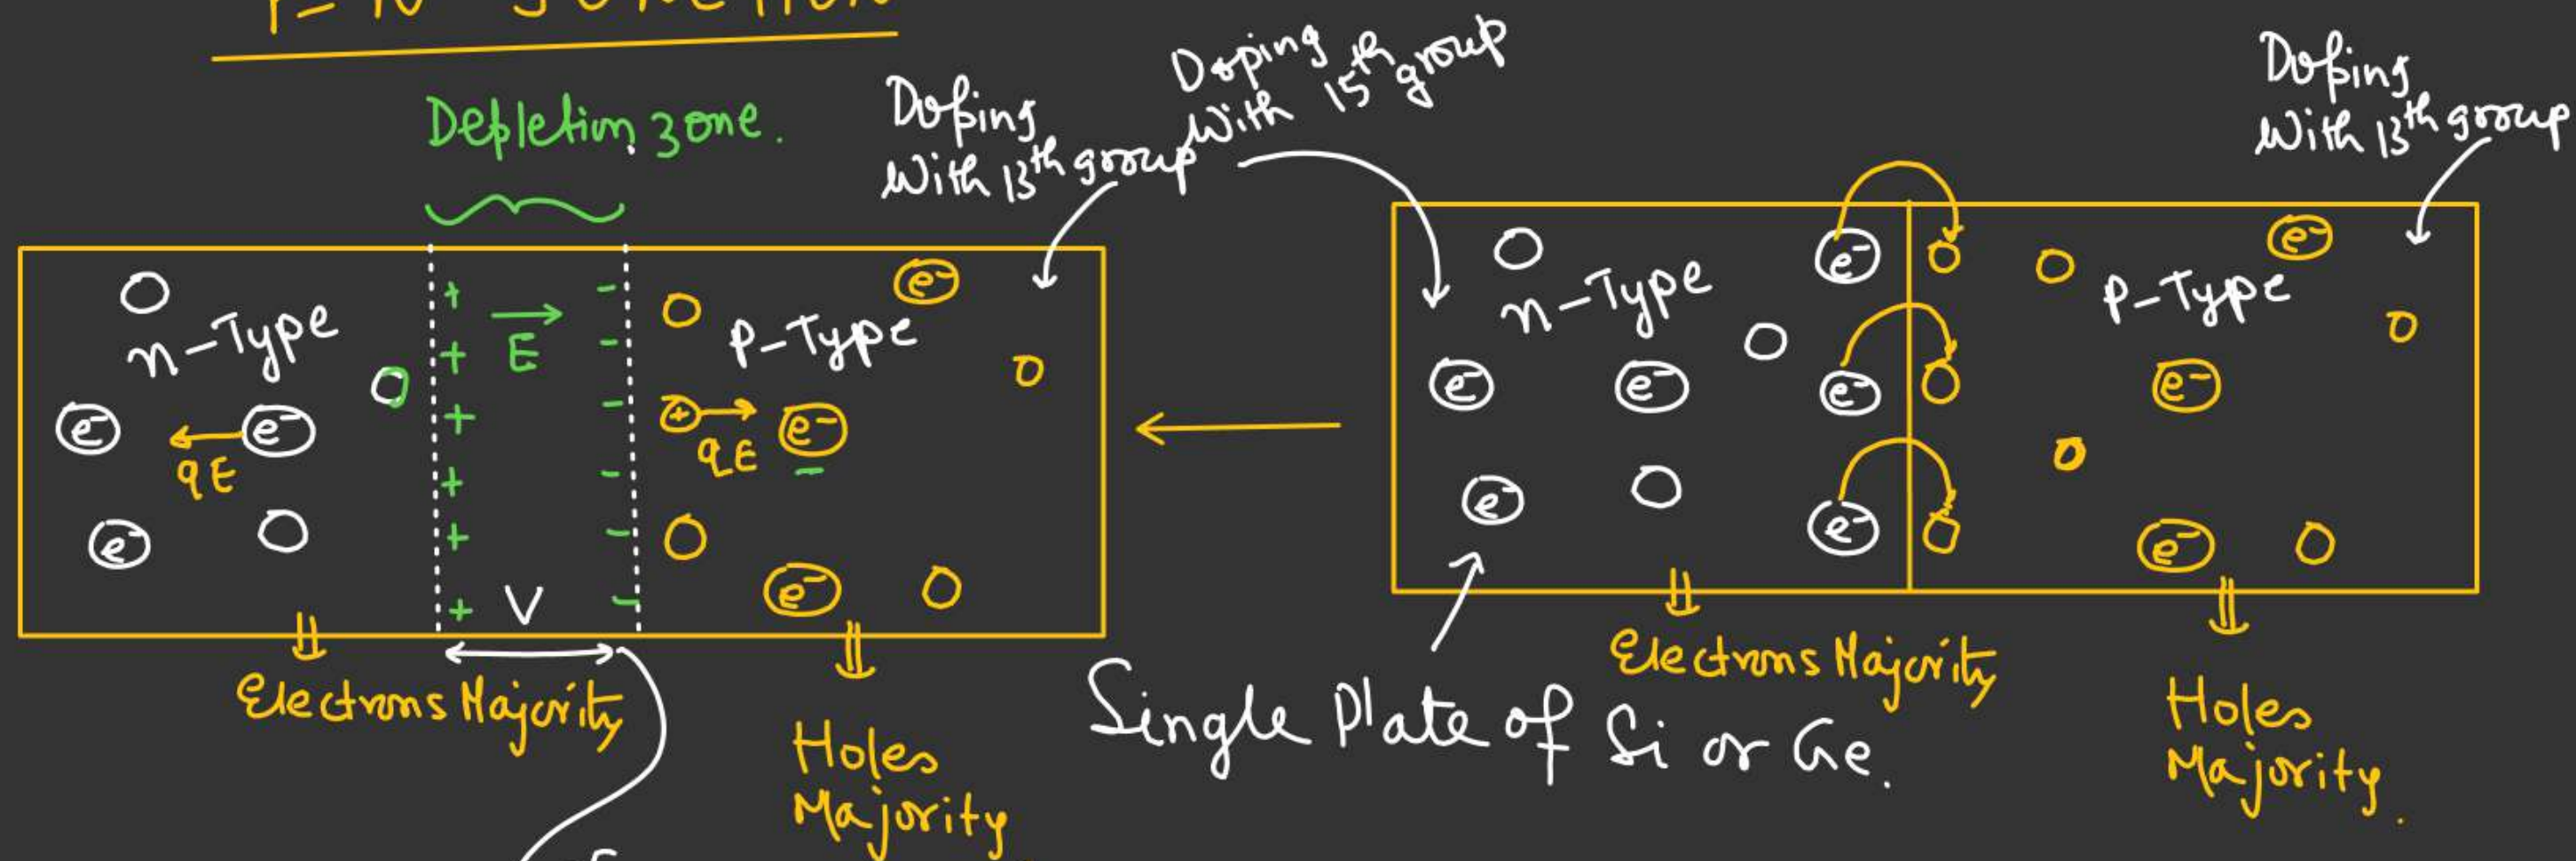 P-N JUNCTION
Depletion zone.
Doping
With 13th group
Doping
With 15th group
Doping
With 13th group
n-Type
+
+
+
+
+
+
E
-
-
-
-
-
-
V
P-Type
e-
e-
qE
e-
e-
+
qE
e-
-
e-
Electrons Majority
Holes
Majority
n-Type
e-
e-
e-
e-
e-
e-
P-Type
e-
e-
e-
Electrons Majority
Holes
Majority.
Single Plate of Si or Ge.